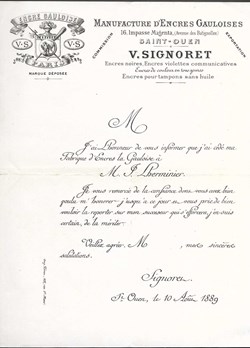 ENCRE GAULOISE
V·S V·S
PARIS
MARQUE DÉPOSÉE
MANUFACTURE D'ENCRES GAULOISES
16, Impasse Magenta, (Avenue des Batignolles)
COMMISSION
EXPORTATION
SAINT-OUEN
V. SIGNORET
Encres noires, Encres violettes communicatives
Encres de couleur en tous genres
Encres pour tampons sans huile
M
J'ai l'honneur de vous informer que j'ai cédé ma
Fabrique d'Encres la Gauloise à
M. J. Lherminier
Je vous remercie de la confiance dont vous avez bien
voulu m'honorer jusqu'à ce jour et vous prie de bien
vouloir la reporter sur mon successeur qui s'efforcera, j'en suis
certain, de la mériter.
Veuillez agréer, M , mes sincères
salutations.
Signoret
St Ouen, le 10 Août 1889